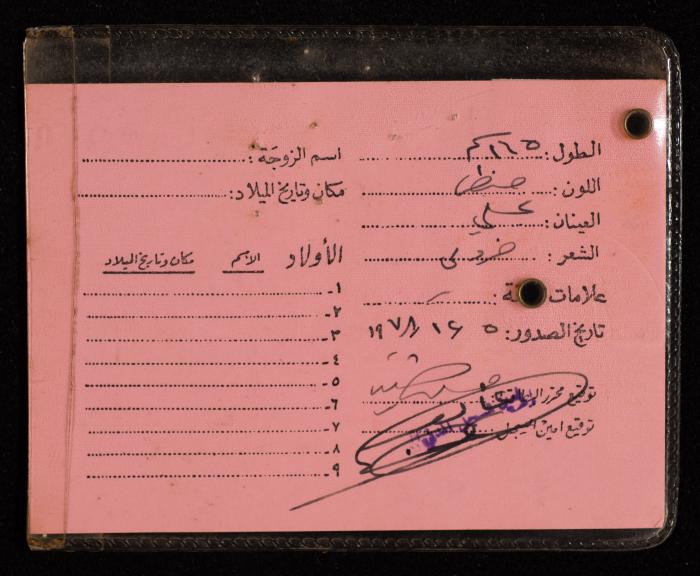 الطول: ١٦٥ كم
اللون: حنطي
العينان: عسلي
الشعر:
علامات
تاريخ الصدور: ٥ / ١٩٧٨
توقيع محرر
توقيع امين السجل
اسم الزوجة:
مكان وتاريخ الميلاد:
الأولاد الاسم مكان وتاريخ الميلاد
١-
٢-
٣-
٤-
٥-
٦-
٧-
٨-
٩-